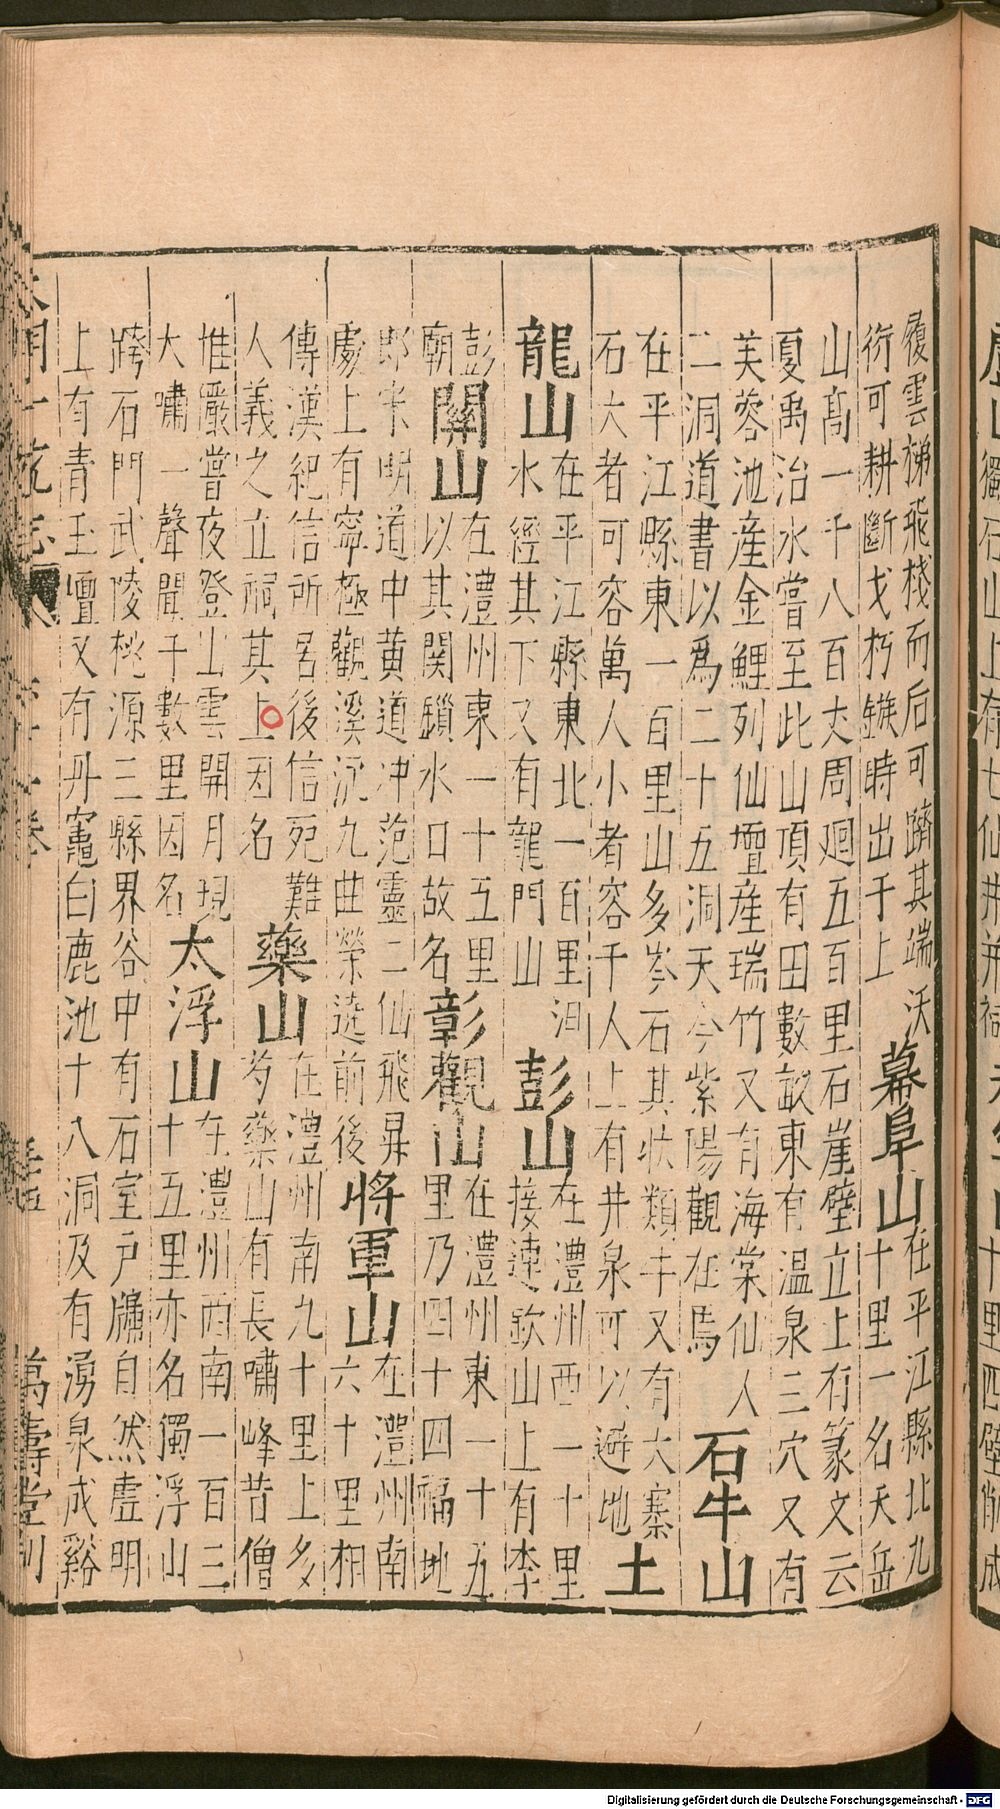 履雲梯飛棧而后可躋其端沃
衍可耕斷戈朽鏃時出于上
幕阜山
在平江縣北九
十里一名天岳
山高一千八百丈周廻五百里石崖壁立上有篆文云
夏禹治水嘗至此山頂有田數畝東有溫泉三穴又有
芙蓉池産金鯉列仙壇産瑞竹又有海棠仙人
二洞道書以爲二十五洞天今紫陽觀在焉
石牛山
在平江縣東一百里山多岑石其狀類牛又有大寨
石大者可容萬人小者容千人上有井泉可以避地
土
龍山
在平江縣東北一百里汨
水經其下又有龍門山
彭山
在澧州西一十里
接連欽山上有李
彭
廟
關山
在澧州東一十五里
以其関鎖水口故名
彰觀山
在澧州東一十五
里乃四十四福地
郎宋明道中黄道冲范靈二仙飛昇
處上有寧極觀溪流九曲縈遶前後
將軍山
在澧州南
六十里相
傳漢紀信所居後信死難
人義之立祠其上因名
藥山
在澧州南九十里上多
芍藥山有長嘯峰昔僧
惟儼嘗夜登山雲開月現
大嘯一聲聞千數里因名
太浮山
在澧州西南一百三
十五里亦名獨浮山
跨石門武陵桃源三縣界谷中有石室戸牖自然虛明
上有青玉壇又有丹竈白鹿池十八洞及有湧泉成谿
萬壽堂刊
Digitalisierung gefördert durch die Deutsche Forschungsgemeinschaft - DFG